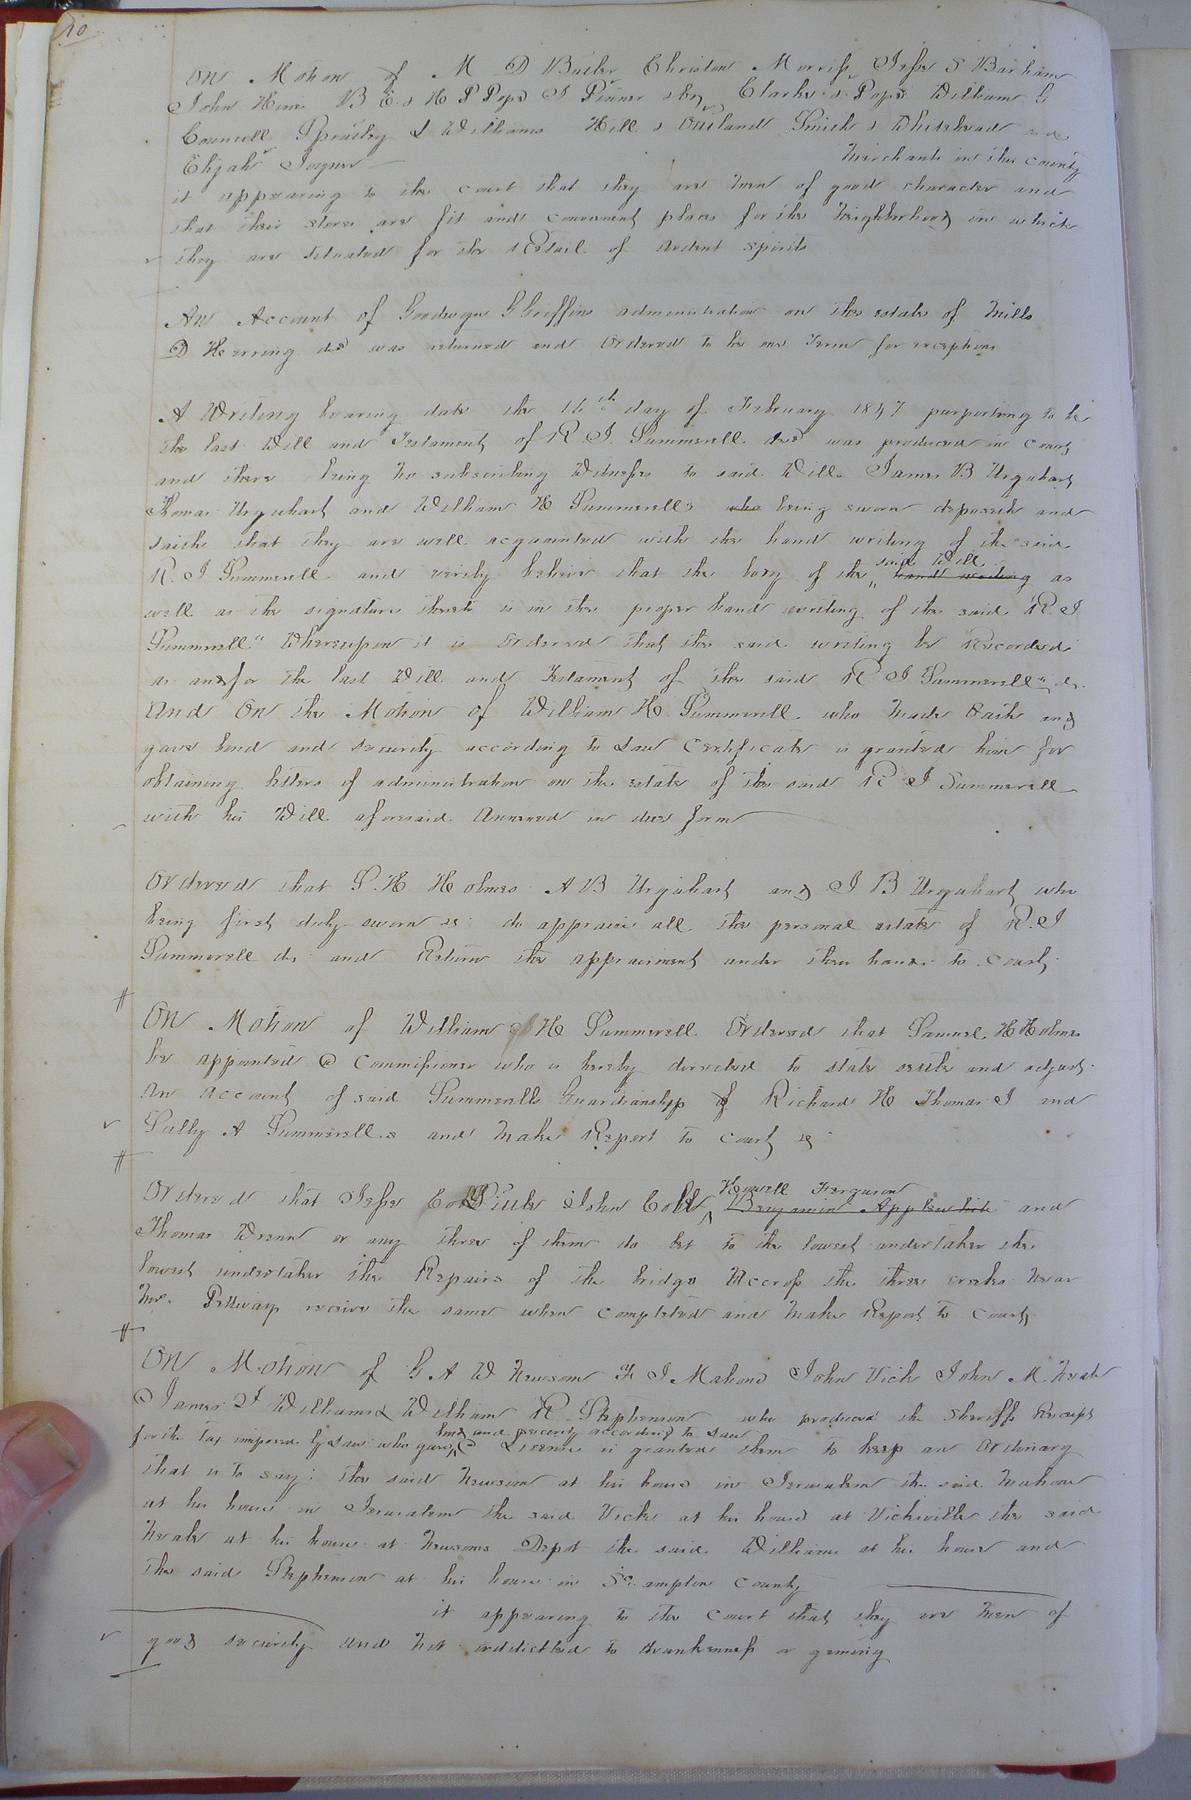 10
On Motion of M D Butler Christon Morriss Jesse S Barham
John Hines B E & H P Pope J Pinner & Clarke & Pope William G
Councill Spratley & Williams Hill & Outland Smith & Whitehead and
Elijah Joyner Merchants in this County
it appearing to the court that they are men of good character and
that their stores are fit and convenient places for the neighborhood in which
they are situated for the Retail of ardent spirits
An Account of Goodwyn G Griffins administration on the estate of Mills
D Herring decd was returned and Ordered to lie one Term for exceptions
A Writing bearing date the 16th day of February 1847 purporting to be
the last Will and Testament of R. J. Summerell decd was produced in court
and there being no subscribing Witnesses to said Will James B Urquhart
Thomas Urquhart and William H Summerells who being sworn deposeth and
saith that they are well acquainted with the hand writing of the said
R. J Summerell and verily believe that the body of the said Will hand writing as
well as the signature thereto is in the proper hand writing of the said R. J
Summerell" Whereupon it is Ordered that the said writing be Recorded
as and for the last Will and Testament of the said R J Summerell" dec.
And On the Motion of William H. Summerell who made Oath and
gave bond and security according to Law Certificate is granted him for
obtaining letters of administration on the estate of the said R J Summerell
with his Will aforesaid Annexed in due form
Ordered that S. H Holmes A B Urquhart and J B Urquhart who
being first duly sworn &c do appraise all the personal estate of R. J
Summerell dec and Return the appraisment under their hands to Court
On Motion of William H Summerell Ordered that Samuel H Holmes
be appointed a Commissioner who is hereby directed to state settle and adjust
an account of said Summerells Guardianship of Richard H Thomas J and
Sally A Summerells and make Report to Court &c
Ordered that Jesse Little John Cobb Howell Ferguson Benjamin Applewhite and
Thomas Wrenn or any three of them do let to the lowest undertaker the
lowest undertaker the Repairs of the bridge Accross the three creeks near
Mrs. Pettways receive the same when completed and make Report to Court
On Motion of G A W Newsom F J Mahone John Vick John M. Neale
James J Williams & William R. Stephenson who produced the Sheriffs Receipt
for the Tax imposed by Law who gave bond and security according to Law a License is granted them to keep an Ordinary
that is to say: the said Newsom at his house in Jerusalem the said Mahone
at his house in Jerusalem the said Vick at his house at Vicksville the said
Neale at his house at Newsoms Depot the said Williams at his house and
the said Stephenson at his house in So. ampton County
it appearing to the court that they are men of
good security and not addicted to drunkenness or gaming